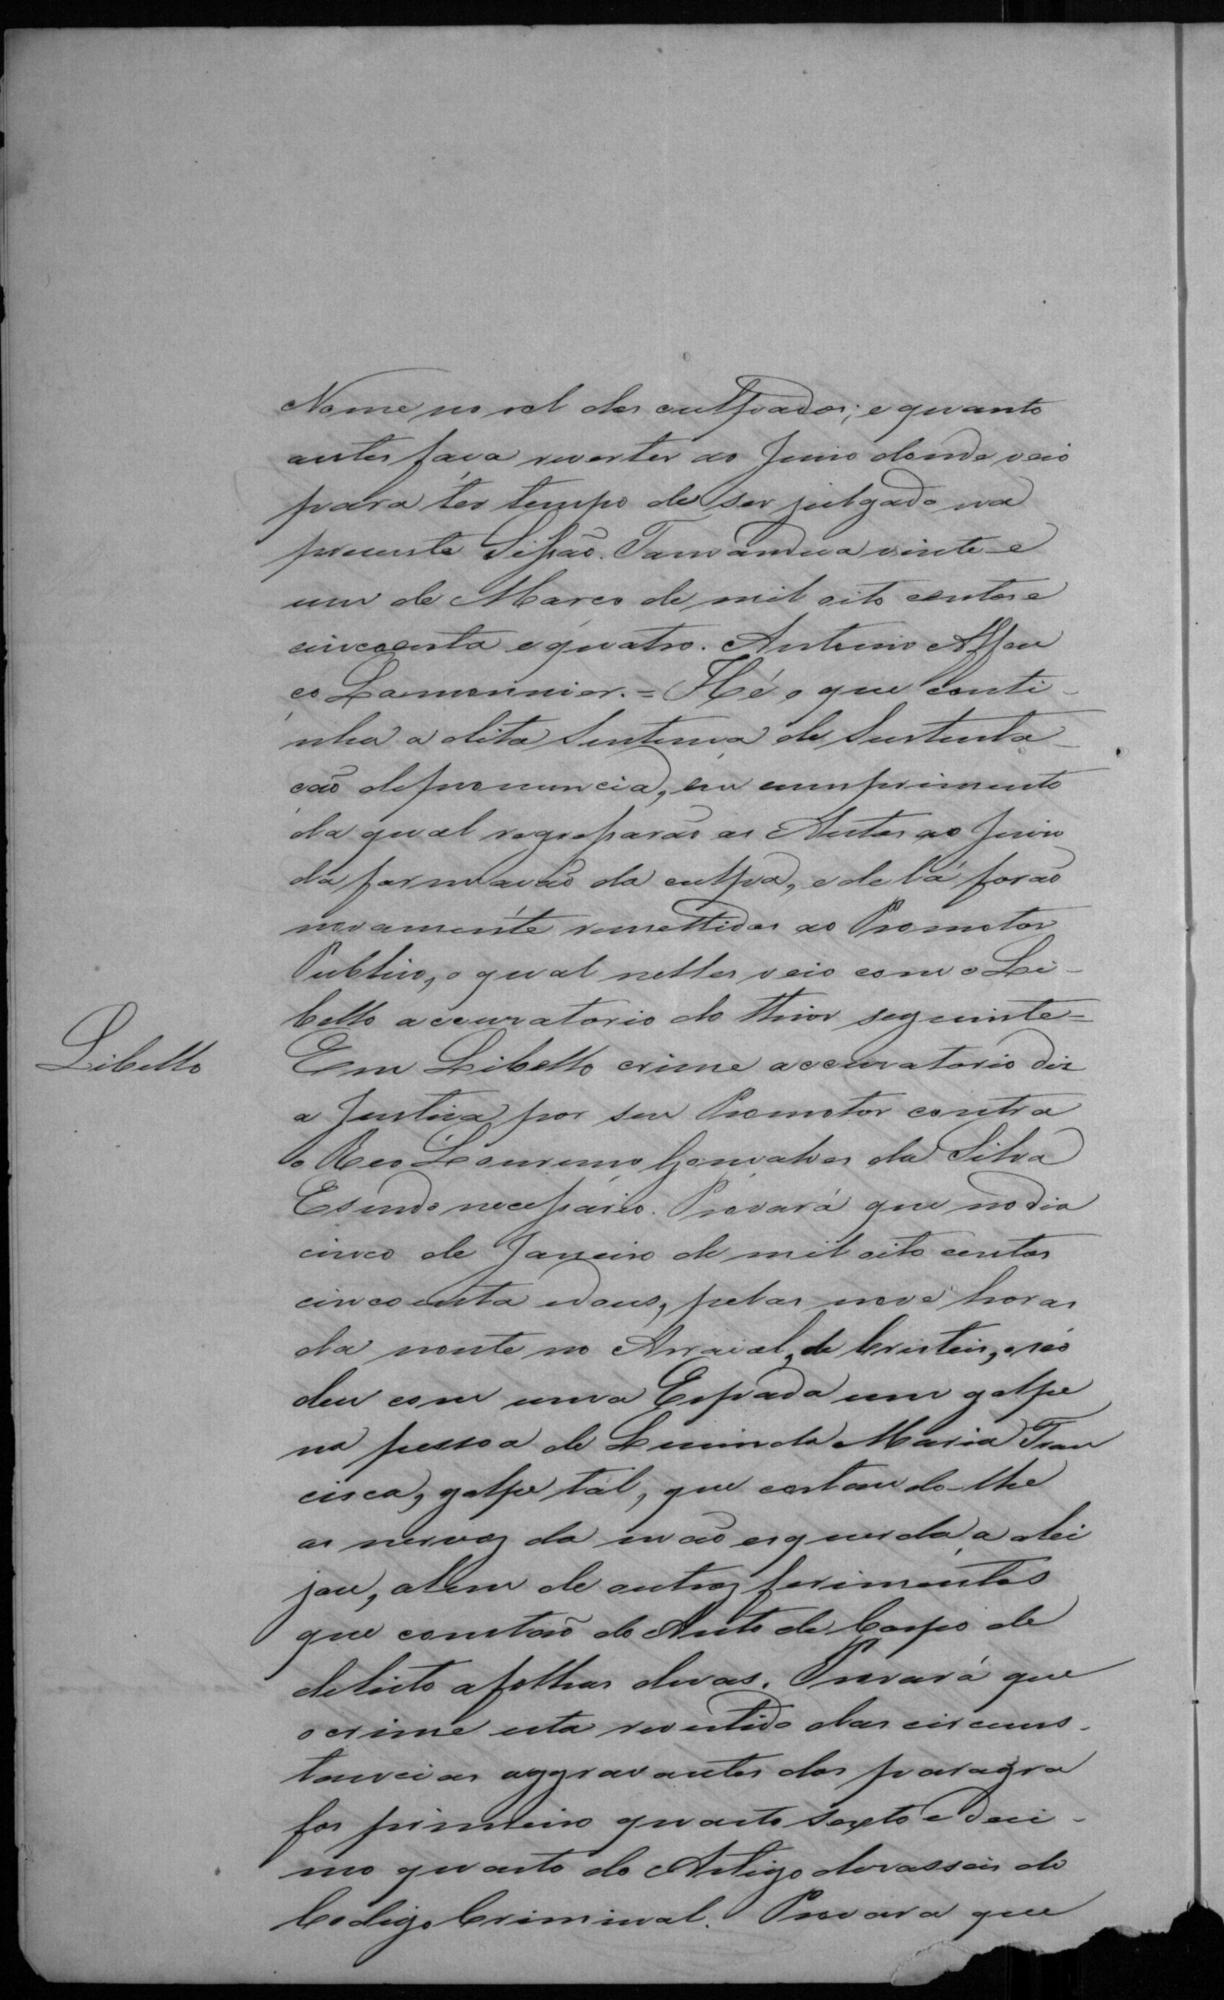 Nome no rol dos culpados; e quanto
antes faça reverter ao Juiso donde veio
para ter tempo de ser julgado na
presente Sessão. Tamanduá vinte e
um de Março de mil oito centos e
cincoenta e quatro. Antonio Affon
ço Lamounier. = Hé o que conti-
nha a dita Sentença de Sustenta-
ção de pronuncia, em cumprimento
da qual regressarão os Autos ao Juiso
da formação da culpa, e de lá forão
novamente remettidos ao Promotor
Publico, o qual nelles veio com o Li-
bello accusatorio do theor seguinte =
Libello
Em Libello crime accusatorio diz
a Justiça por seu Promotor contra
o Reo Lourenço Gonçalves da Silva
E sendo necessario. Provará que no dia
cinco de Janeiro de mil oito centos
cincoenta e dous, pelas nove horas
da noute no Arraial de Cristais, o réo
deu com uma Espada um golpe
na pessoa de Luzinda Maria Fran
cisca, golpe tál, que cortando-lhe
os nervos da mão esquerda a alei
jou, alem de outros ferimentos
que constão do Auto de Corpo de
delicto a folhas duas. Provará que
o crime esta revestido das circuns-
tancias aggravantes dos paragra
fos primeiro quarto sexto e deci-
mo quarto do Artigo desasseis do
Codigo Criminal. Provara que